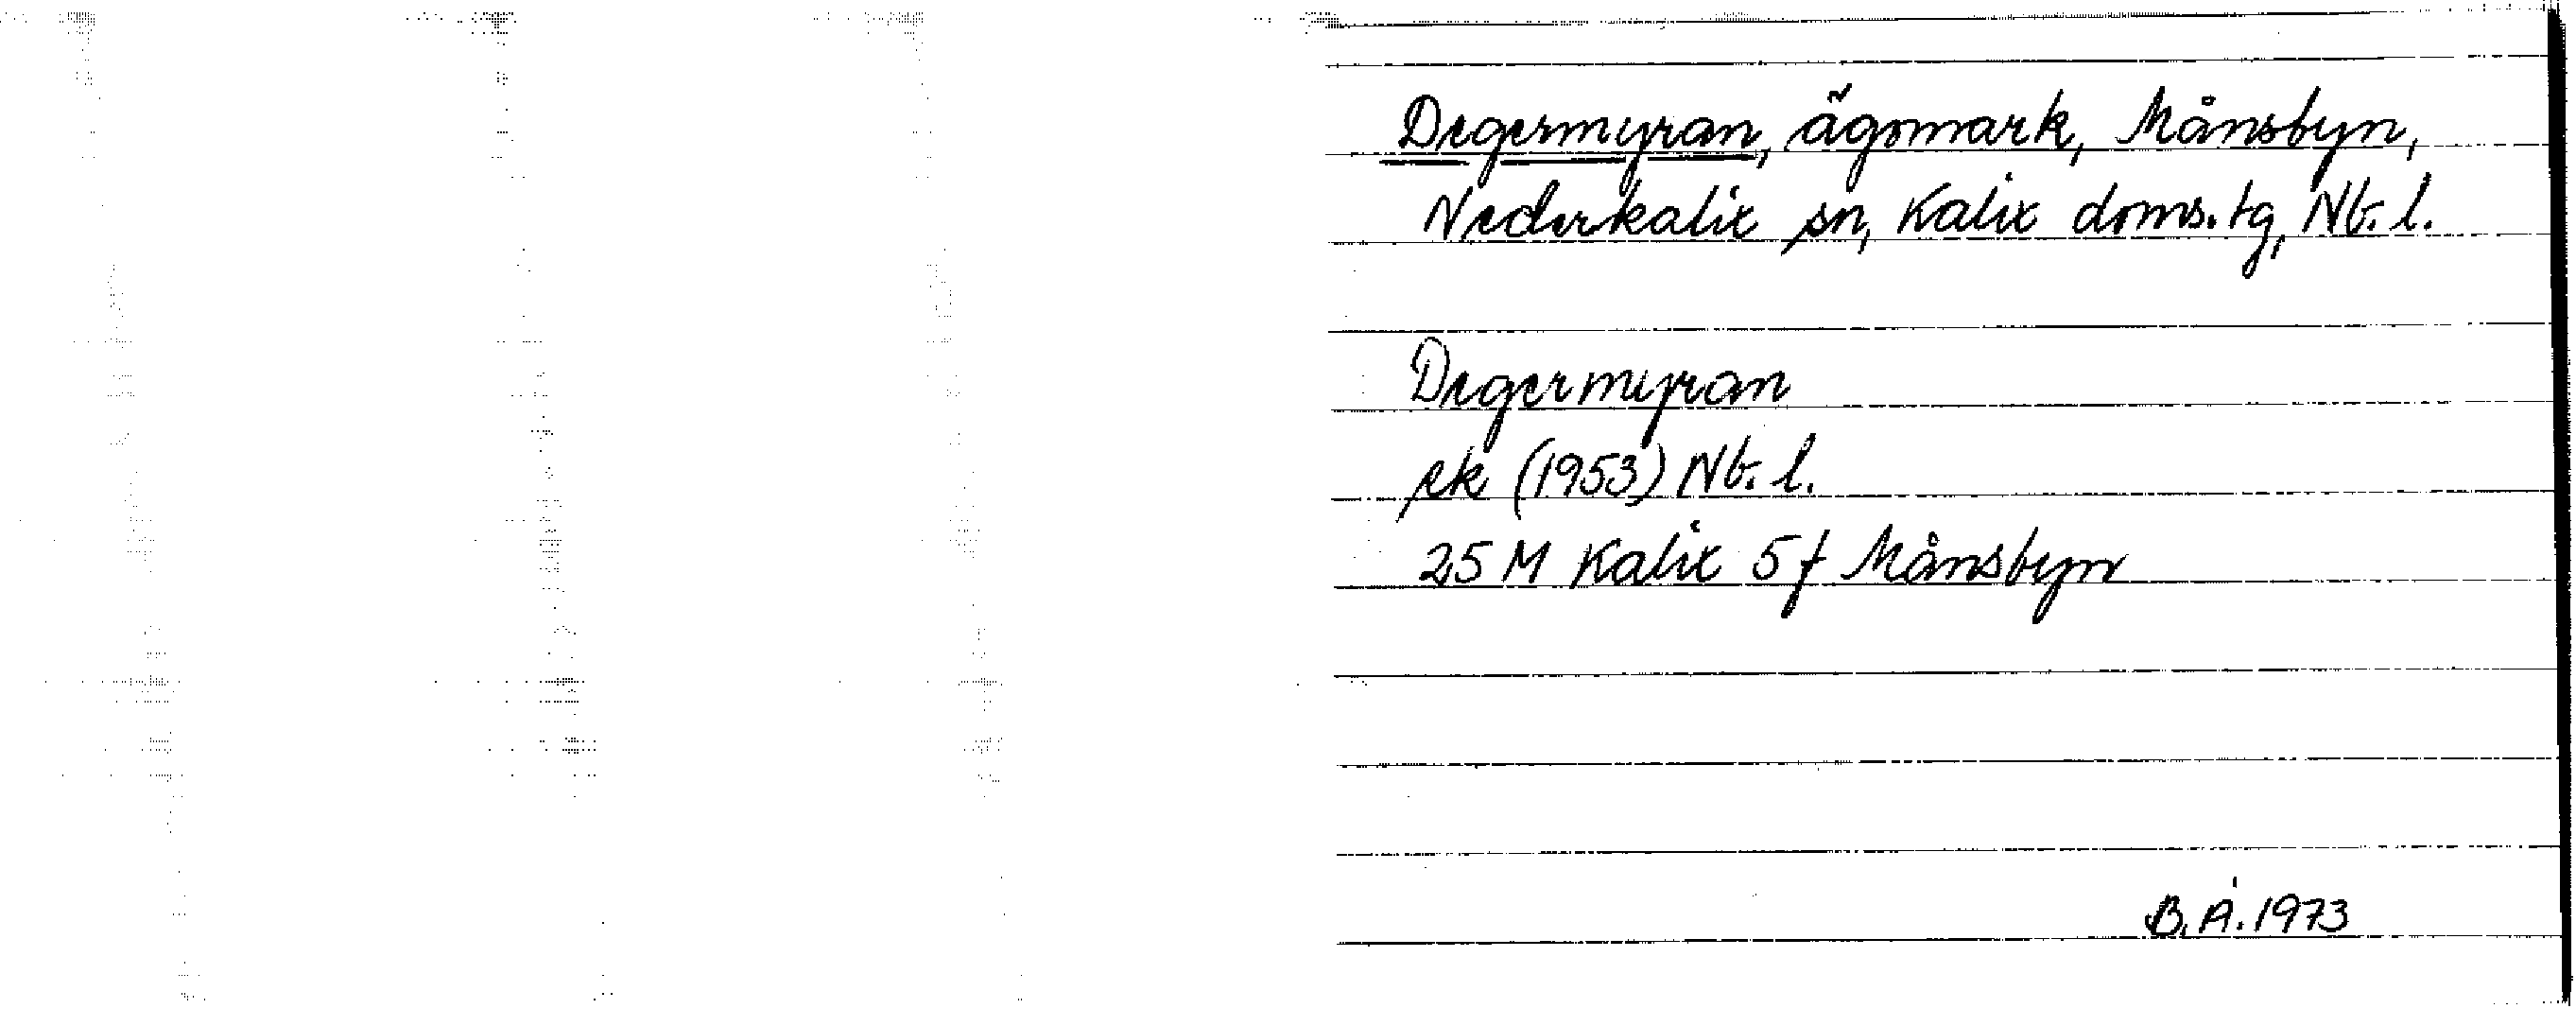 Degermyran, ägomark, Månsbyn,
Nederkalix sn, Kalix doms.tg, Nb. l.
Degermyran
ek (1953) Nb. l.
25 M Kalix 5 f Månsbyn
B.Å. 1973